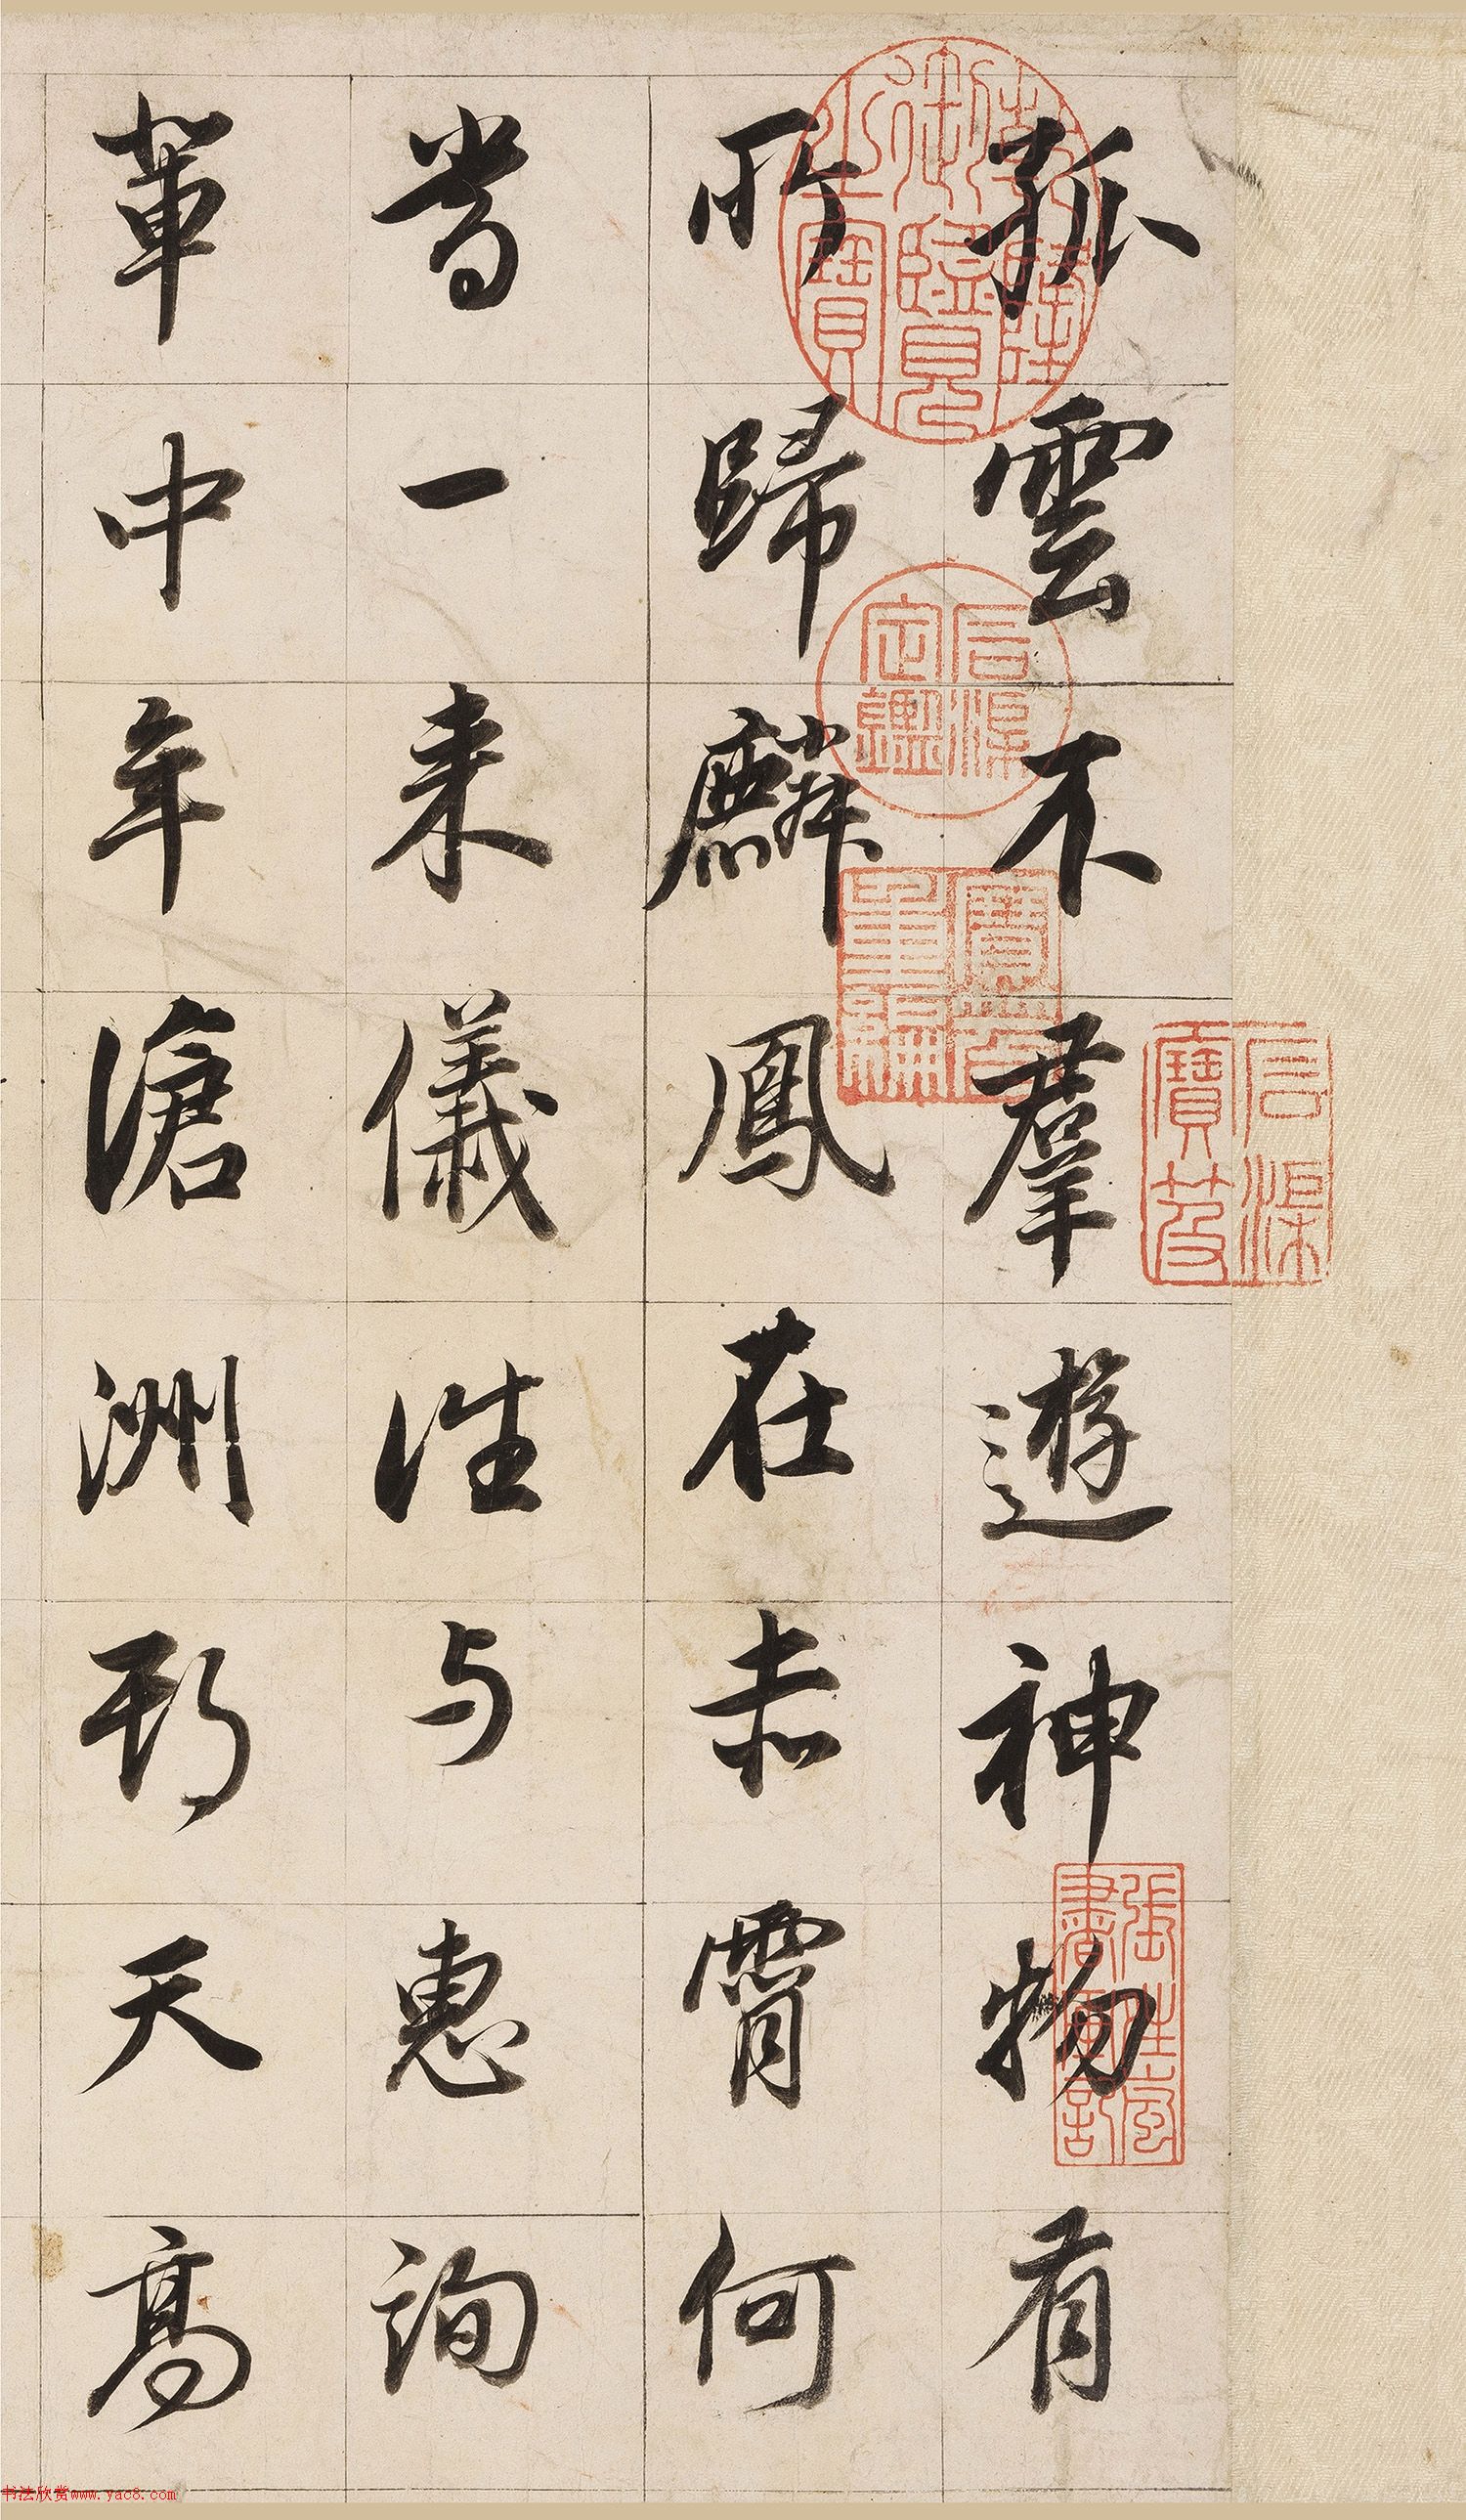 孤雲不羣遊神物有
所歸麟鳳在赤霄何
當一来儀往与惠詢
輩中年滄洲期天高
乾隆御覽之寶
石渠定鑑
寶笈重編
石渠寶笈
书法欣赏www.yac8.com